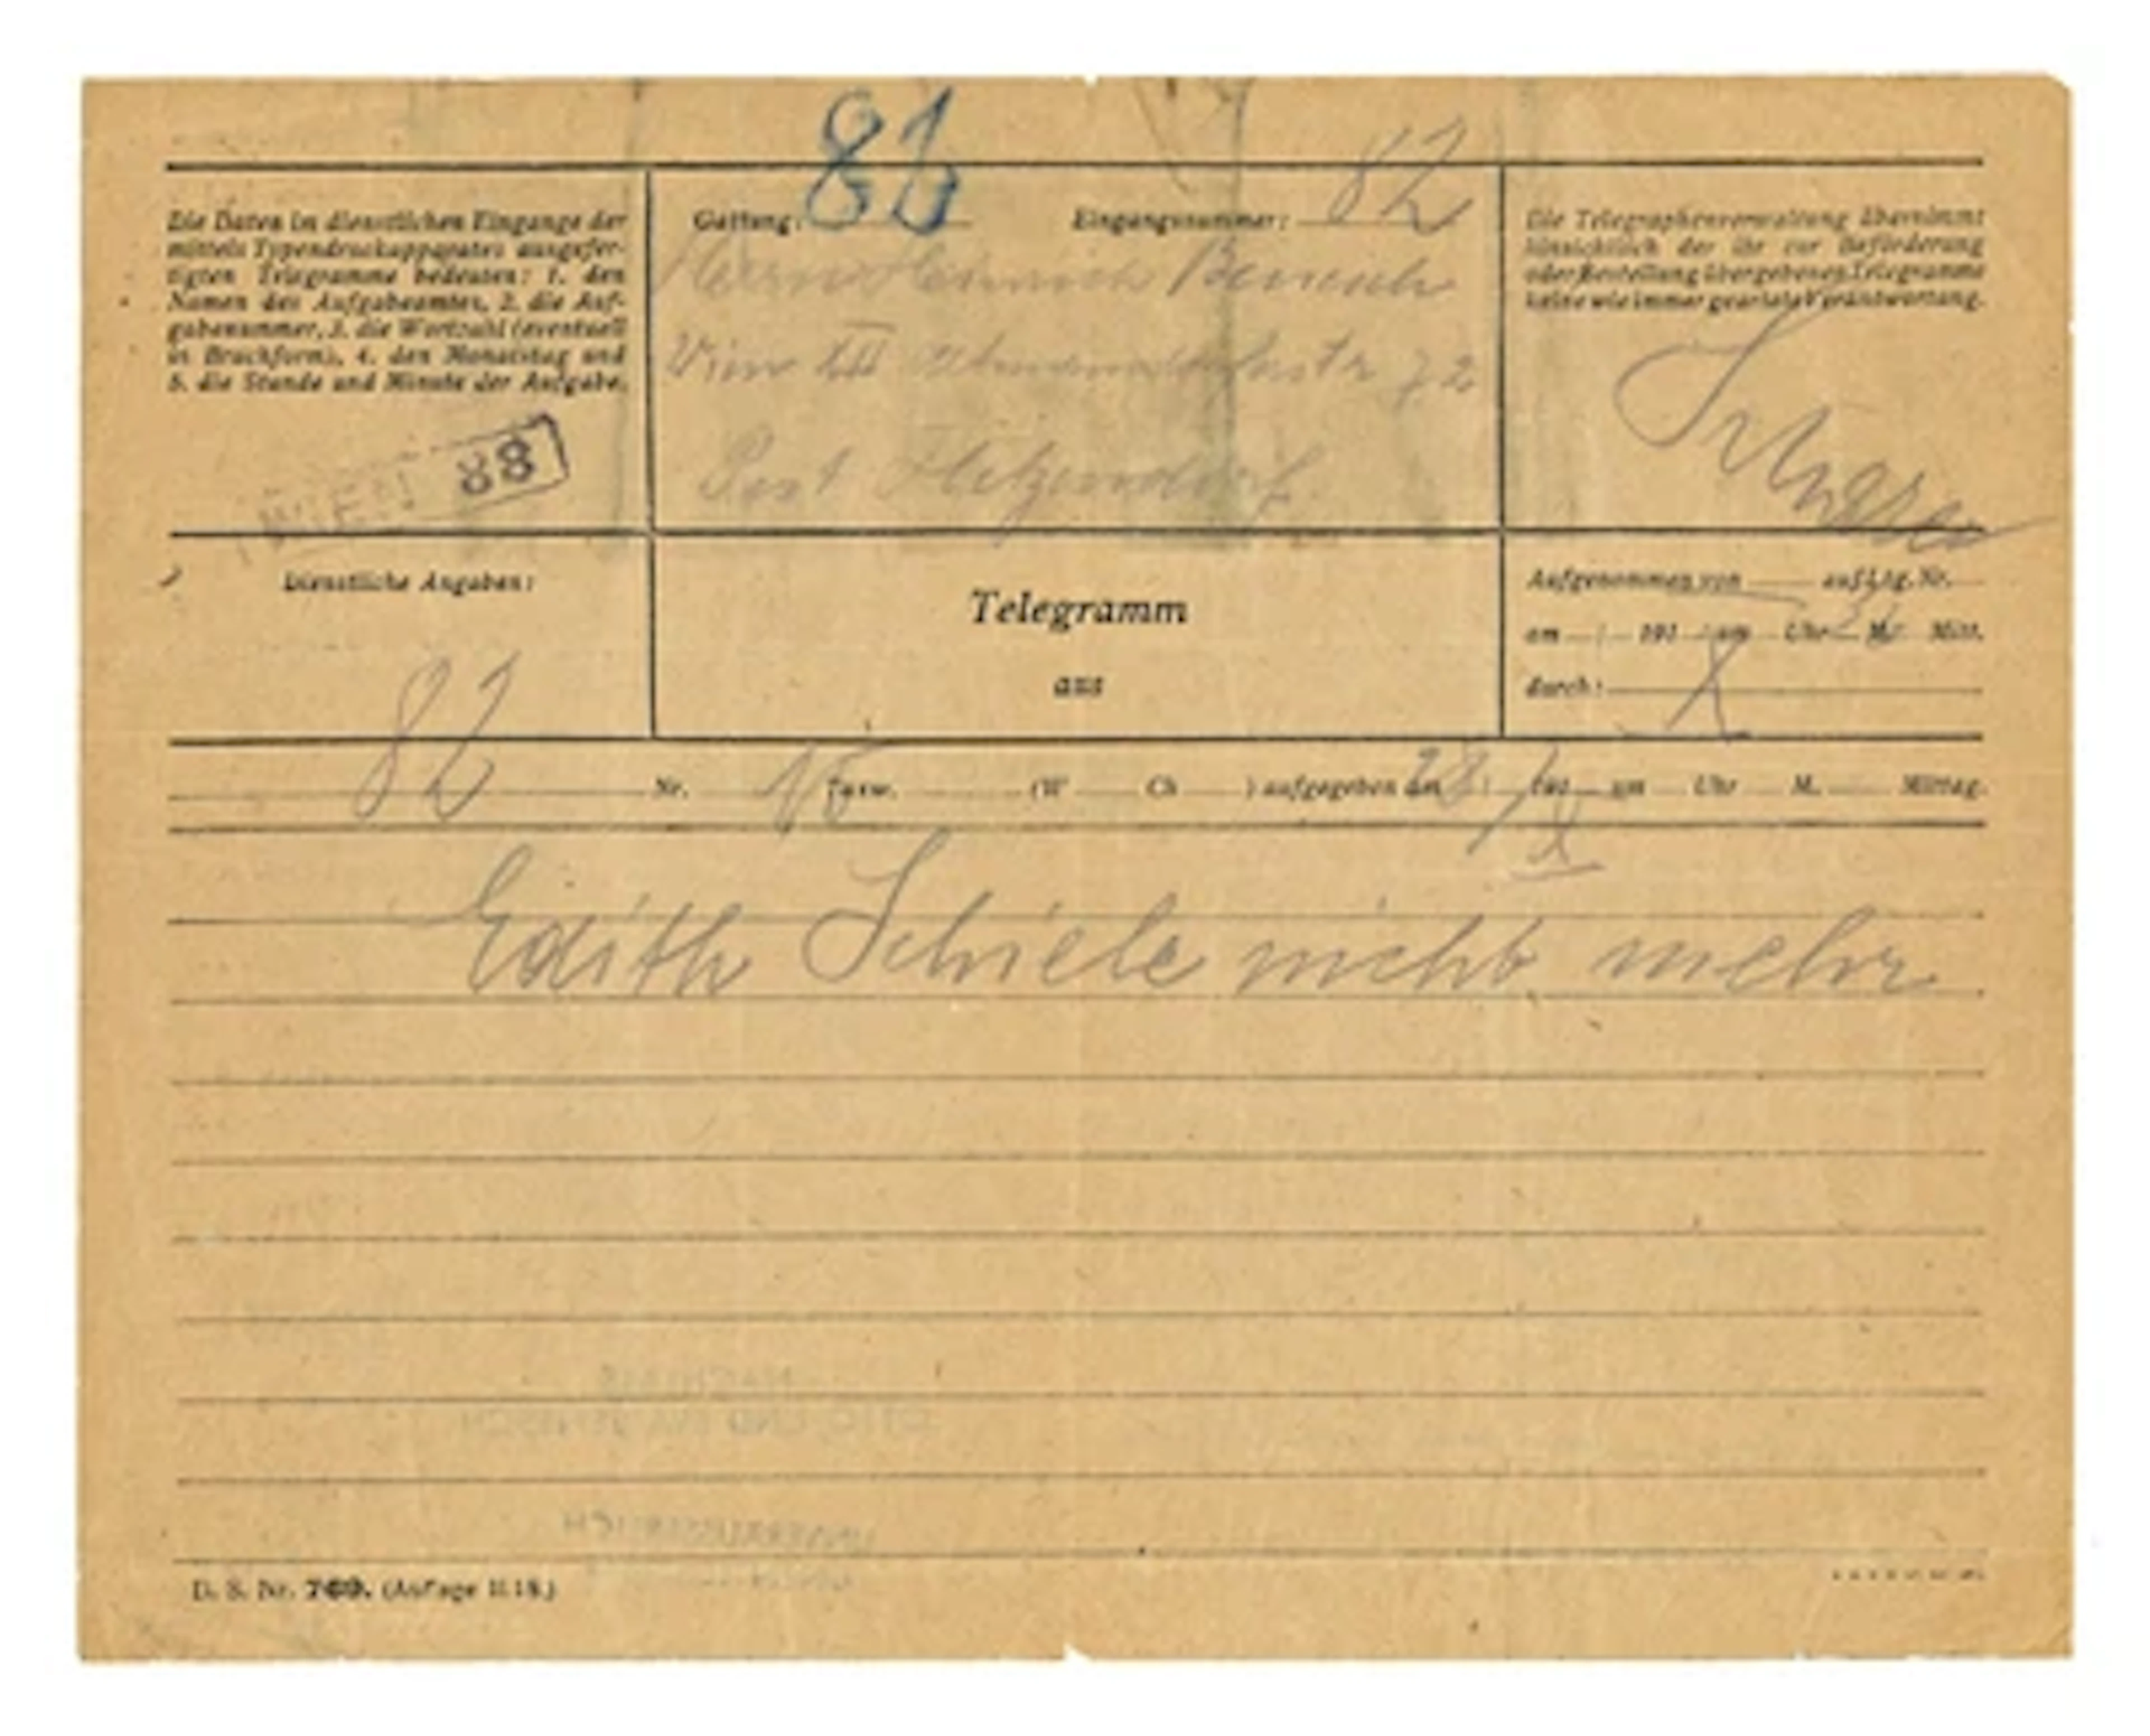 81
Die Daten im dienstlichen Eingange der
mittels Typendruckapparates ausgefer-
tigten Telegramme bedeuten: 1. den
Namen des Aufgabeamtes, 2. die Auf-
gabenummer, 3. die Wortzahl (eventuell
in Bruchform), 4. den Monatstag und
5. die Stunde und Minute der Aufgabe.
WIEN 88
Gattung:
Eingangsnummer: 82
Herrn Heinrich Benesch
Wien XII 72
Post Hetzendorf
Die Telegraphenverwaltung übernimmt
hinsichtlich der ihr zur Beförderung
oder Bestellung übergebenen Telegramme
keine wie immer geartete Verantwortung.
Dienstliche Angaben:
Telegramm
aus
Aufgenommen von auf Ltg. Nr.
am 191 um Uhr M. Mitt.
durch:
82 Nr. 15 Taxw. (W Ch ) aufgegeben am 28/X 191 um Uhr M. Mittag.
Edith Schiele nicht mehr
NACHLASS
OTTO UND EVA BENESCH
UNVERÄUSSERLICH
D. S. Nr. 769. (Auflage 1918.)